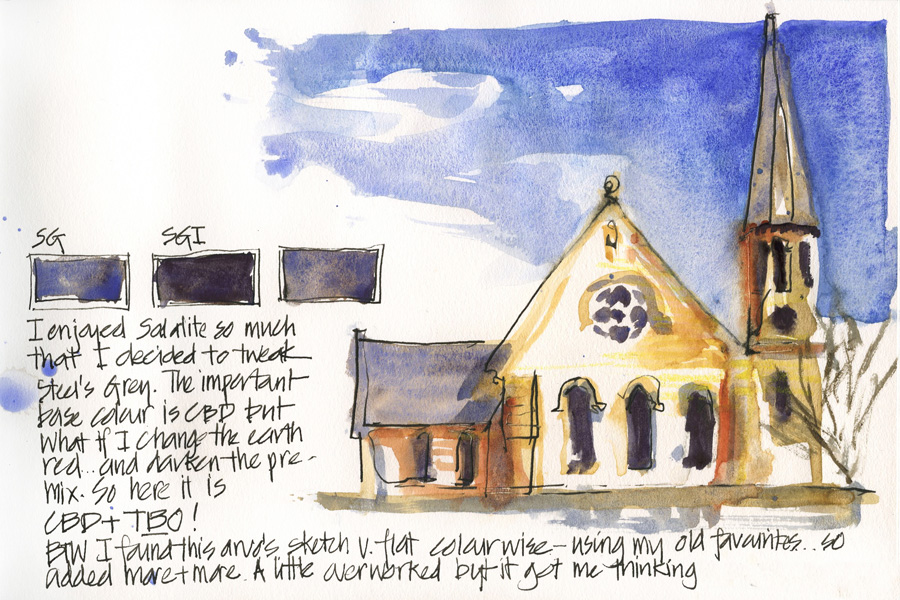 SG SGI
I enjoyed Sodalite so much
that I decided to tweak
Steel's Grey. The important
base colour is CBD but
What if I change the earth
red... and darken the pre-
mix. So here it is
CBD + TBO!
BTW I found this arvo's sketch v. flat colourwise - using my old favourites... so
added more + more. A little overworked but it got me thinking